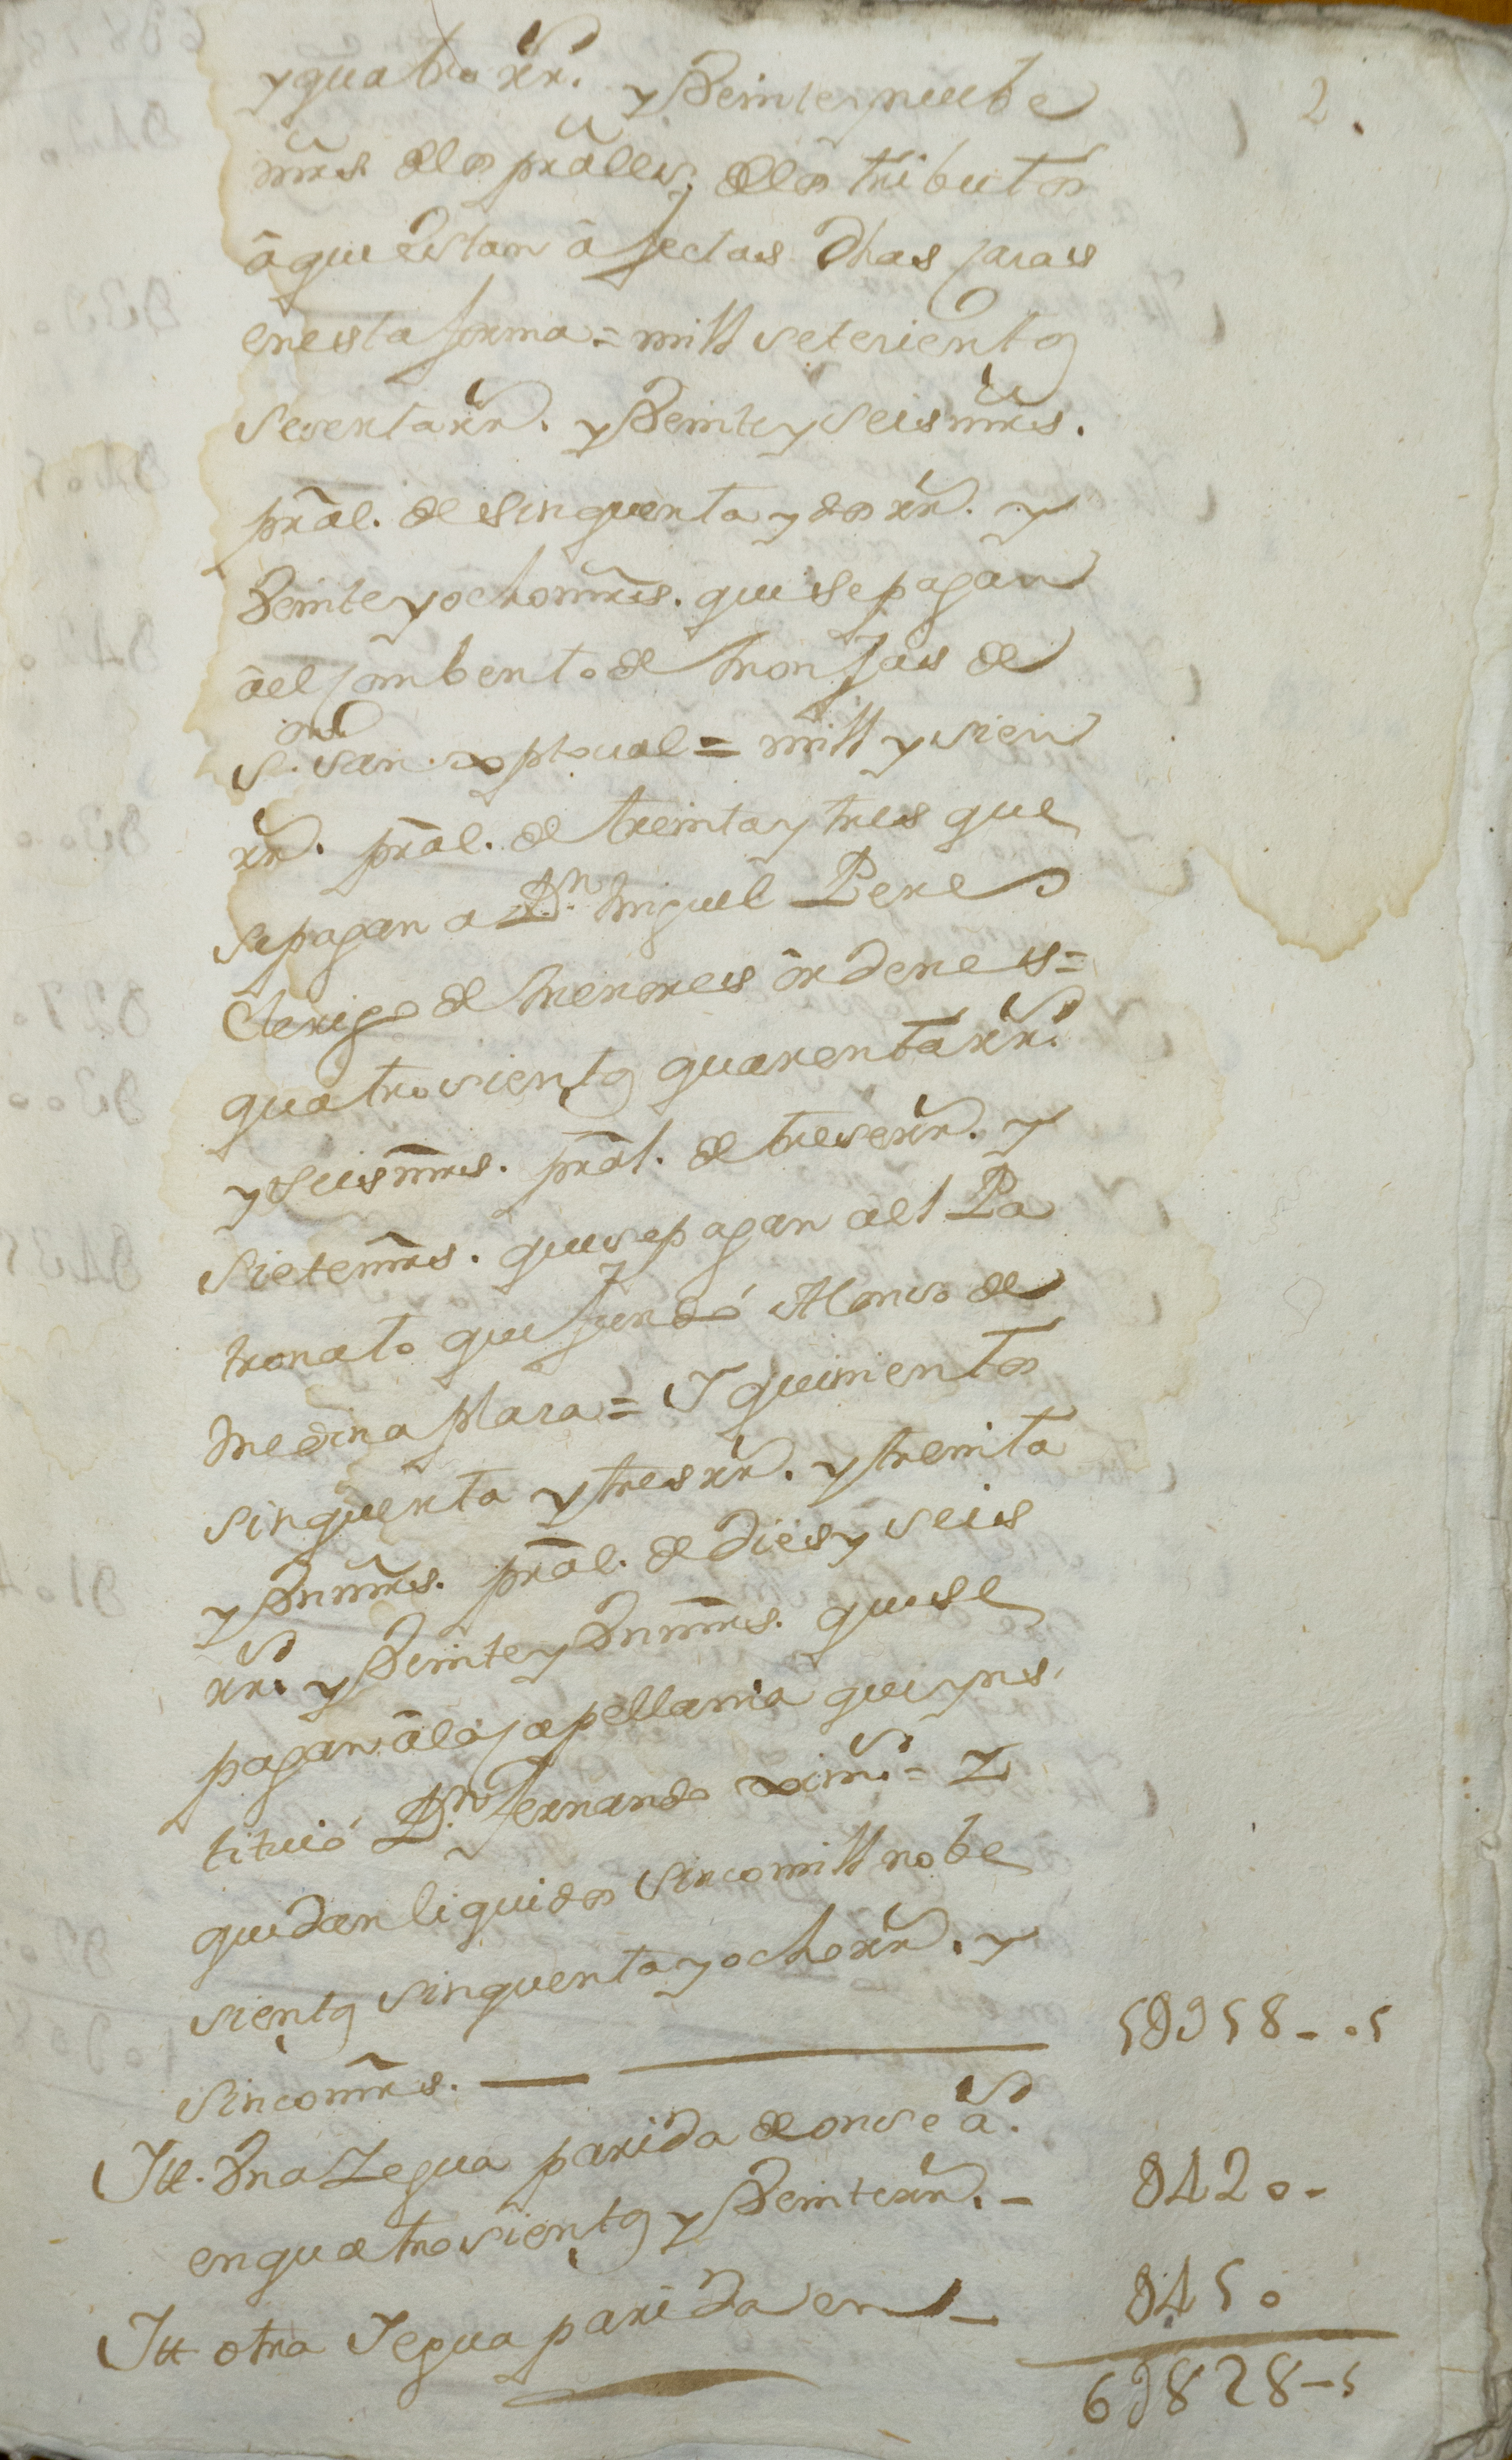 2.
y quatro rr.s y Veinte y nuebe
mrs. de los prāles; de los tributos
â que estan âfectas dhas casas
en esta forma = mill setesientos
sesenta rr.s y Veinte y seis mrs.
prāl. de sinquenta y dos rr.s y
Veinte y ocho mrs. que se pagan
âel combento de monjas de
s.or san xptoual = mill y sien
rr.s prāl. de treinta y tres que
se pagan a D.n Miguel Peres
Clerigo de menores ôrdenes =
quatrosientos quarenta rr.s
y seis mrs. prāl. de trese rr.s y
siete mrs. que se pagan âel Pa
tronato que fundó Alonso de
Medina plasa = I quinientos
sinquenta y tres rr.s y treinta
y Vn mrs. prāl. de dies y seis
rr.s y Veinte y Vn mrs. que se
pagan âla capellania que yns.
tituió D.n Fernando xim.s = Y
quedan liquidos sinco mill nobe
sientos sinquenta y ocho rr.s y
sinco mrs. — 5U958-.5
Itt. Vna Yegua parida de onse a.s
en quatrosientos y Veinte rr.s - U420-
Itt otra Yegua parida en - U450
6U828-5